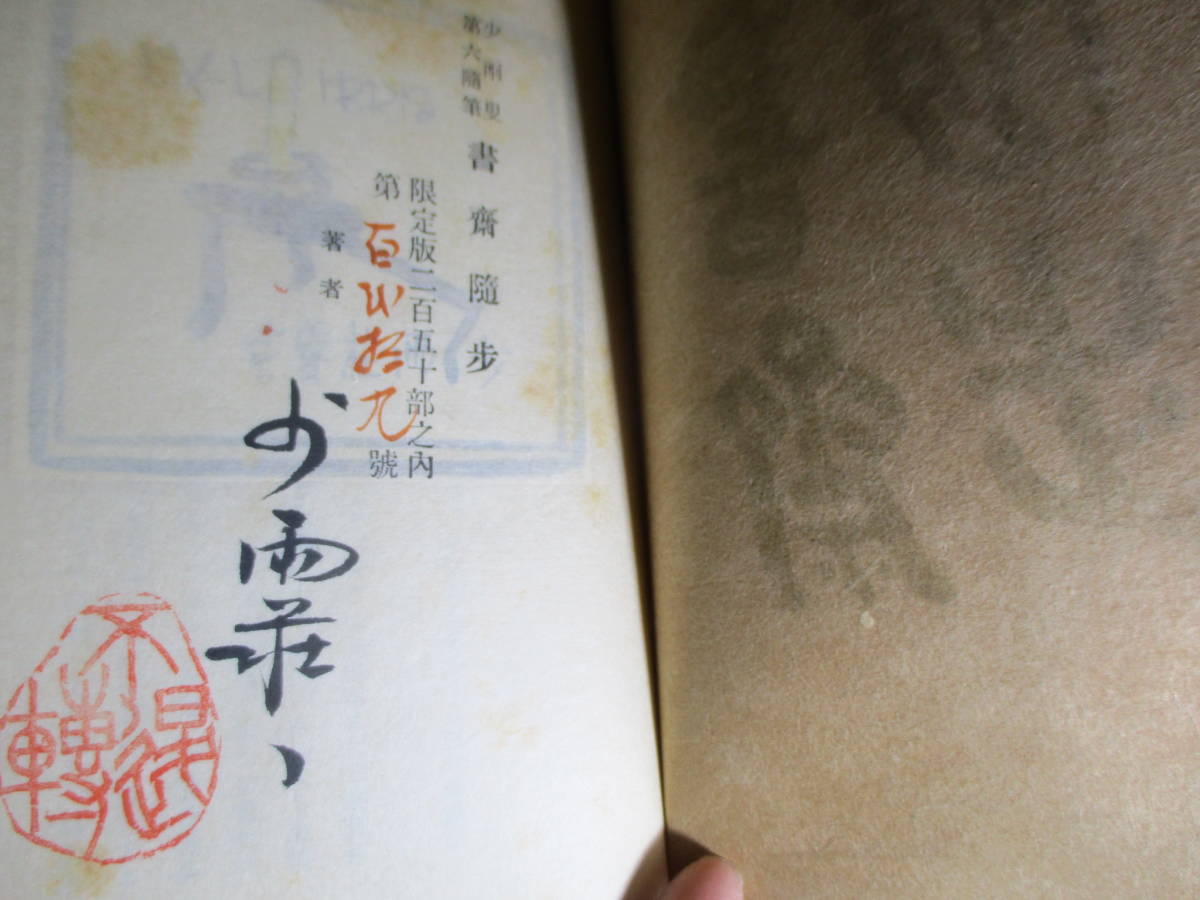 少雨叟
第六隨筆
書齋隨步
限定版二百五十部之內
第百拾九號
著者
少雨荘
不退轉